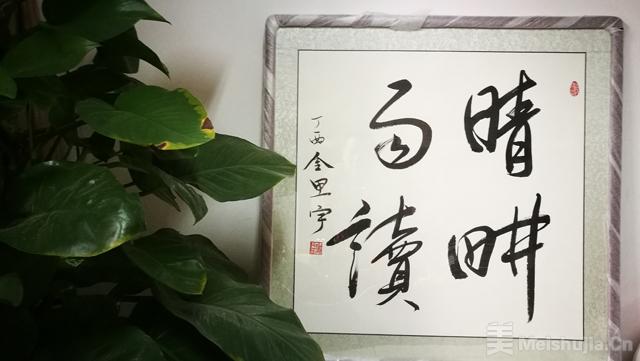 晴畊
雨讀
丁酉
美 Meishujia.Cn